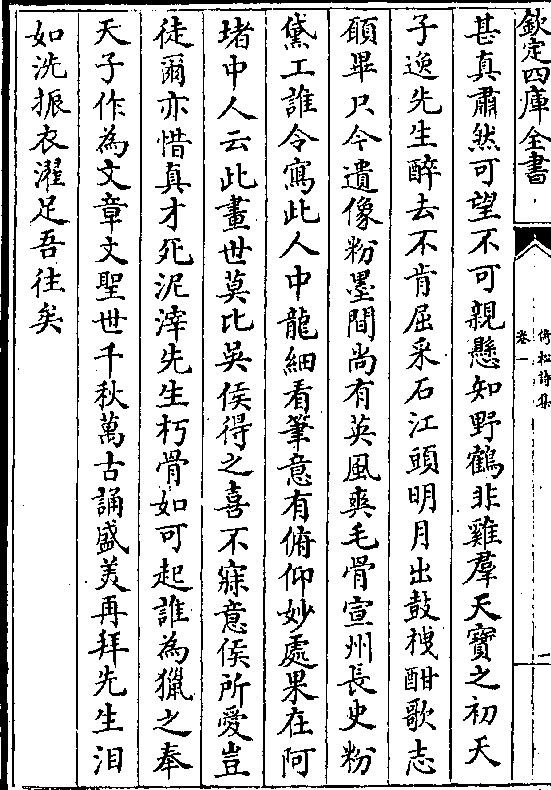 欽定四庫全書
倚松詩集
卷一
甚真肅然可望不可親懸知野鶴非雞羣天寶之初天
子逸先生醉去不肯屈采石江頭明月出鼓枻酣歌志
願畢只今遺像粉墨間尚有英風爽毛骨宣州長史粉
黛工誰令寫此人中龍細看筆意有俯仰妙處果在阿
堵中人云此畫世莫比吳侯得之喜不寐意侯所愛豈
徒爾亦惜真才死泥滓先生朽骨如可起誰為獵之奉
天子作為文章文聖世千秋萬古誦盛美再拜先生泪
如洗振衣濯足吾往矣